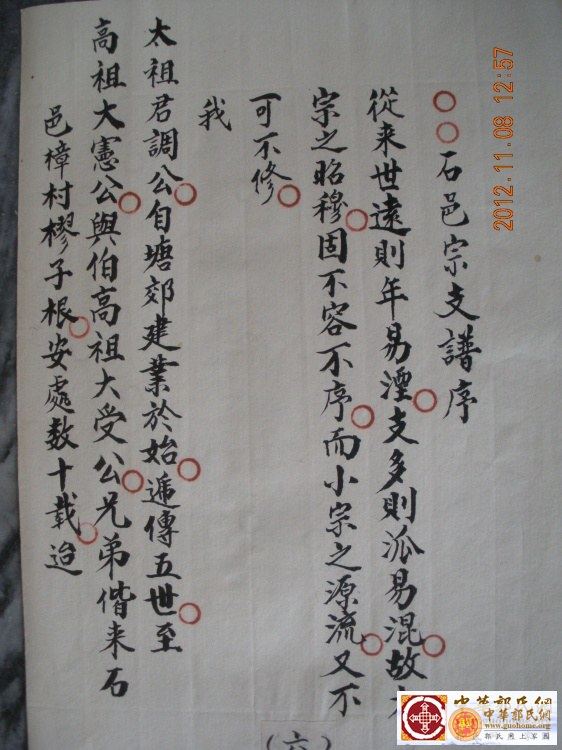 石邑宗支譜序
從来世遠則年易湮支多則派易混故
宗之昭穆固不容不序而小宗之源流又不
可不修
我
太祖君調公自塘郊建業於始遞傳五世至
高祖大憲公與伯高祖大受公兄弟偕来石
邑樟村樛子根安處数十載迨
(六)
2012.11.08 12:57
中華郭氏網
www.guohome.org